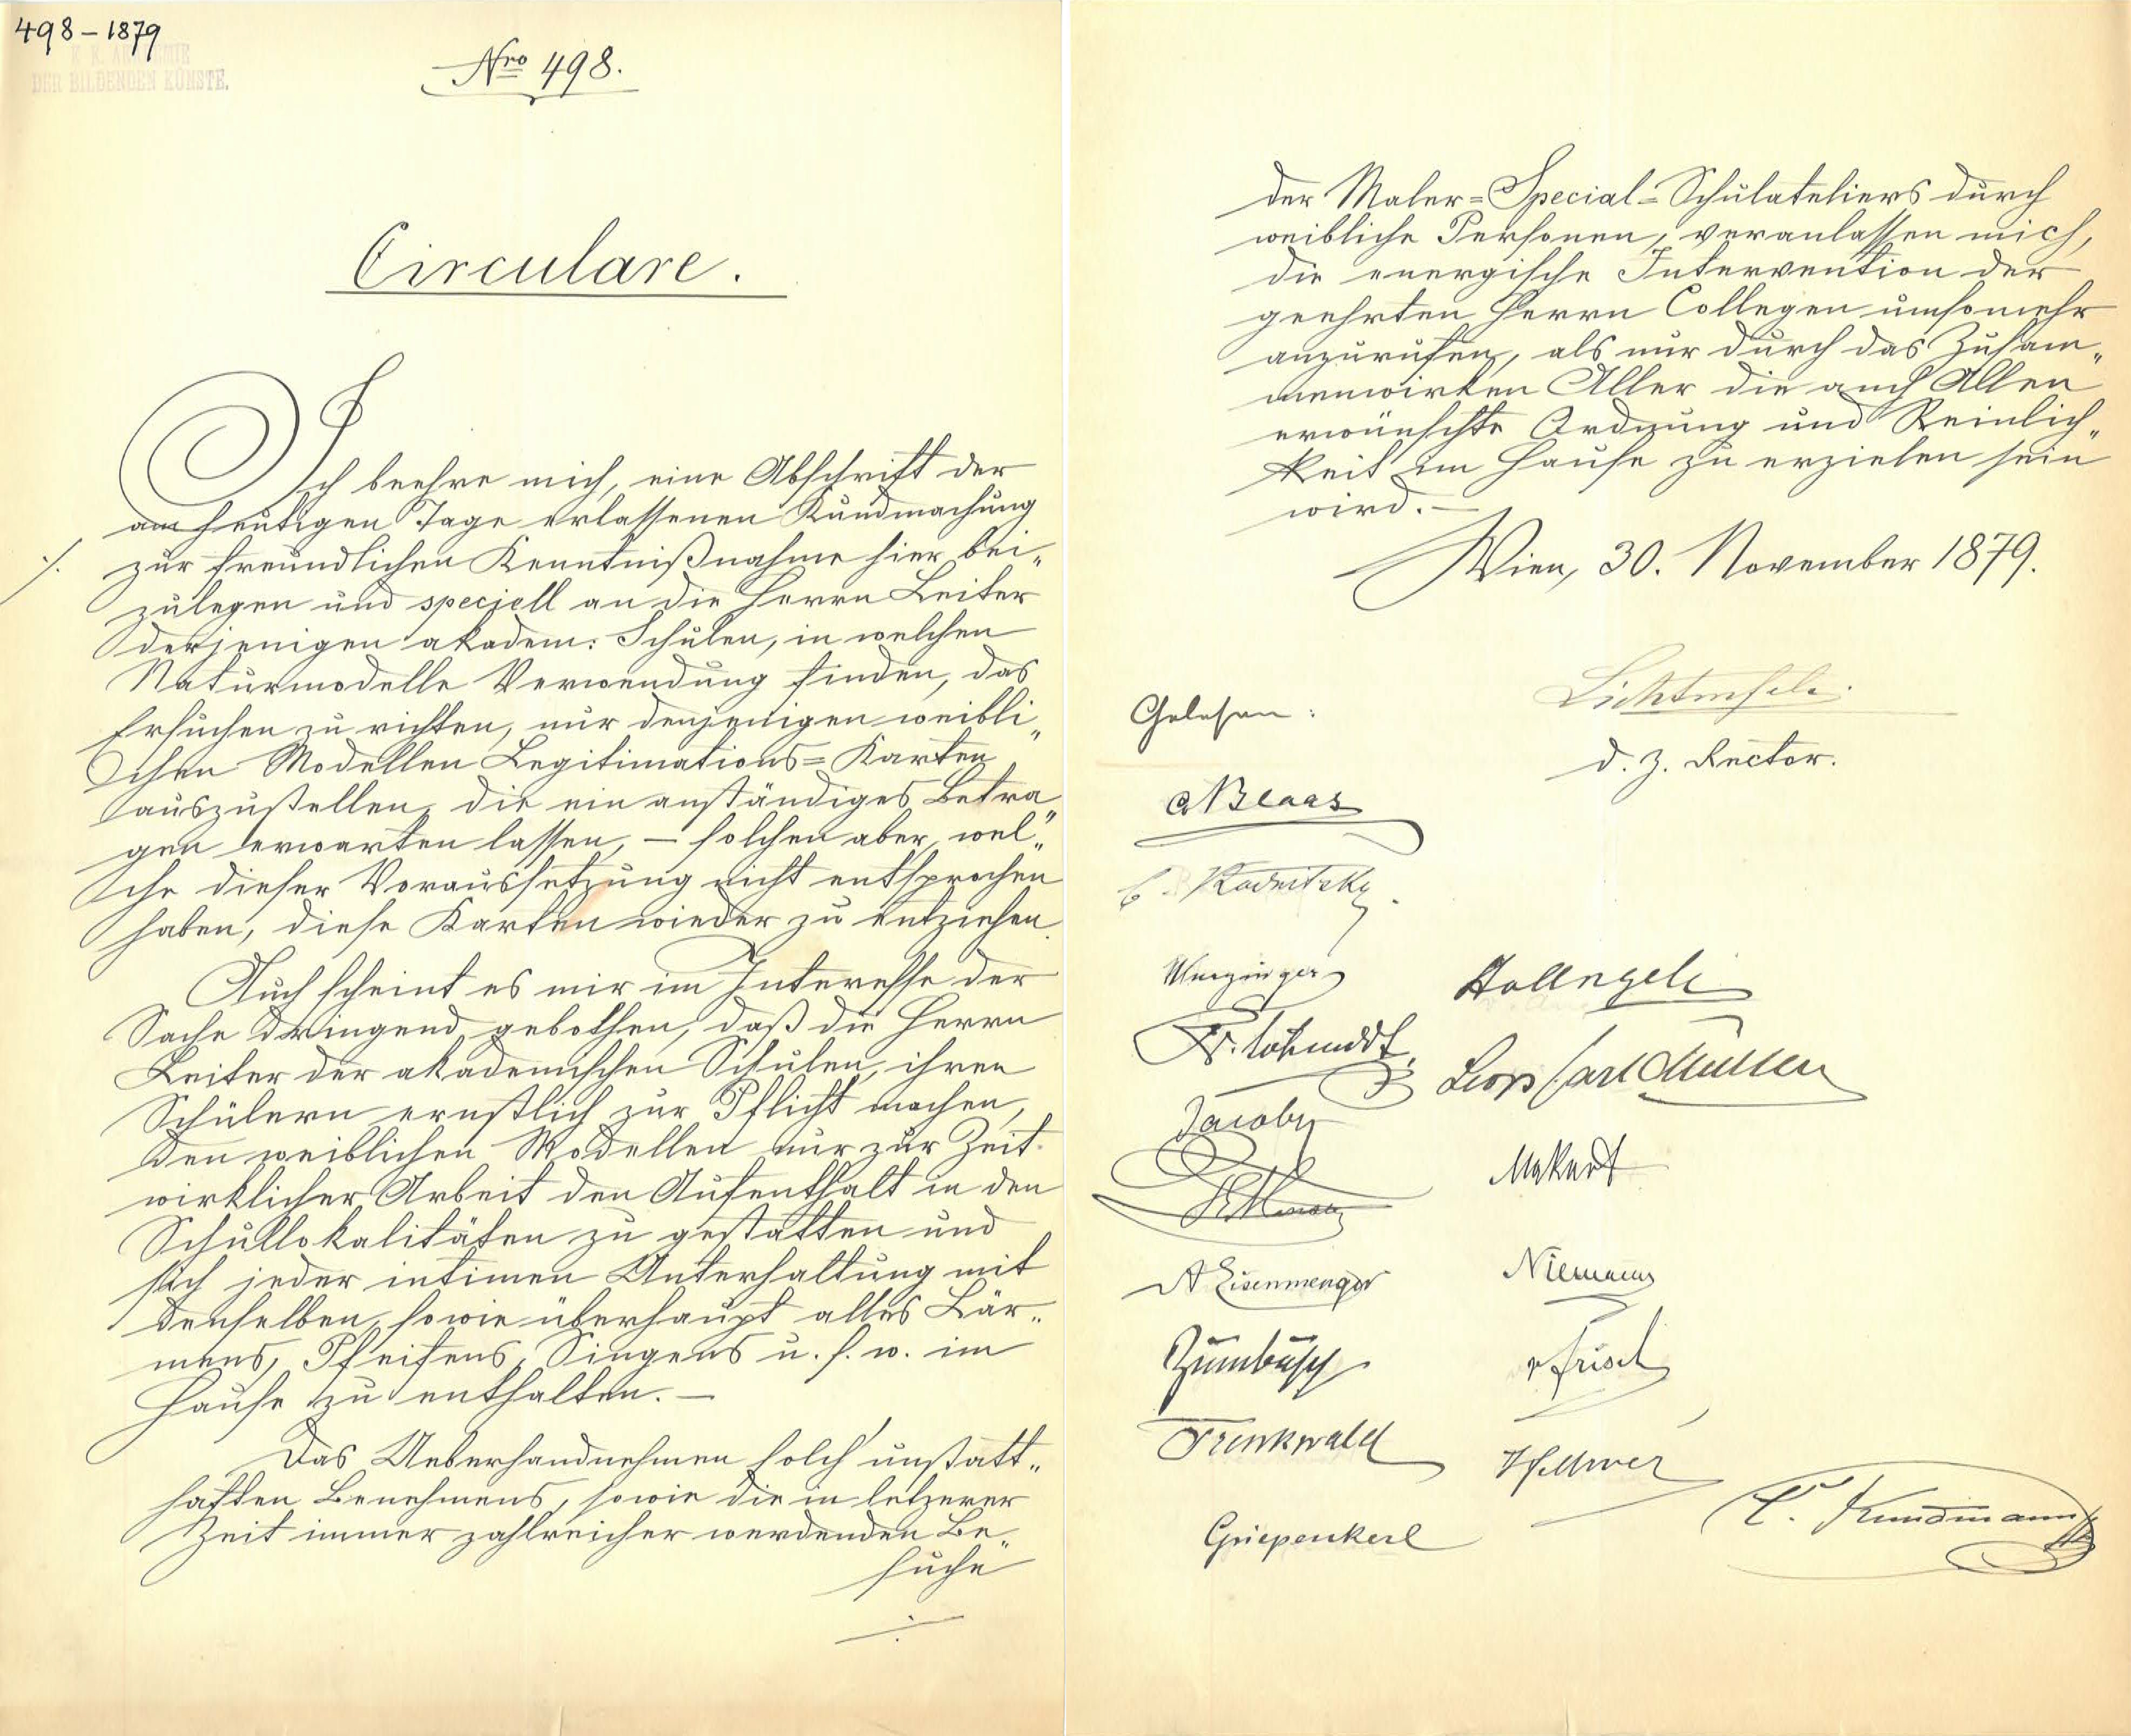 498-1879
K. K. AKADEMIE
DER BILDENDEN KÜNSTE.
Nro 498.
Circulare.
Ich beehre mich, eine Abschrift der
am heutigen Tage erlassenen Kundmachung
./. zur freundlichen Kenntnißnahme hier bei„
zulegen und speciell an die Herrn Leiter
derjenigen akadem: Schulen, in welchen
Naturmodelle Verwendung finden, das
Ersuchen zu richten, nur denjenigen weibli„
chen Modellen Legitimations=Karten
auszustellen, die ein anständiges Betra„
gen erwarten lassen, – solchen aber, wel„
che dieser Voraussetzung nicht entsprochen
haben, diese Karten wieder zu entziehen.
Auch scheint es mir im Interesse der
Sache dringend gebothen, daß die Herrn
Leiter der akademischen Schulen, ihren
Schülern ernstlich zur Pflicht machen,
den weiblichen Modellen nur zur Zeit
wirklicher Arbeit den Aufenthalt in den
Schullokalitäten zu gestatten und
sich jeder intimen Unterhaltung mit
denselben, sowie überhaupt alles Lär„
mens, Pfeifens, Singens u. s. w. im
Hause zu enthalten. –
Das Ueberhandnehmen solch' unstatt„
haften Benehmens, sowie die in letzerer
Zeit immer zahlreicher werdenden Be„
suche
der Maler=Special=Schulateliers durch
weibliche Personen, veranlassen mich,
die energische Intervention der
geehrten Herrn Collegen umsomehr
anzurufen, als nur durch das Zusam„
menwirken Aller die auch Allen
erwünschte Ordnung und Reinlich„
keit im Hause zu erzielen sein
wird. –
Wien, 30. November 1879.
Lichtenfels
d. z. Rector.
Gelesen:
C Blaas
C. Radnitzky.
Wurzinger
Fr. Schmidt
Jacoby
A Eisenmenger
Zumbusch
Trenkwald
Griepenkerl
Leop Carl Müller
Makart
Niemann
v Frisch
Hellmer
C. Kundmann